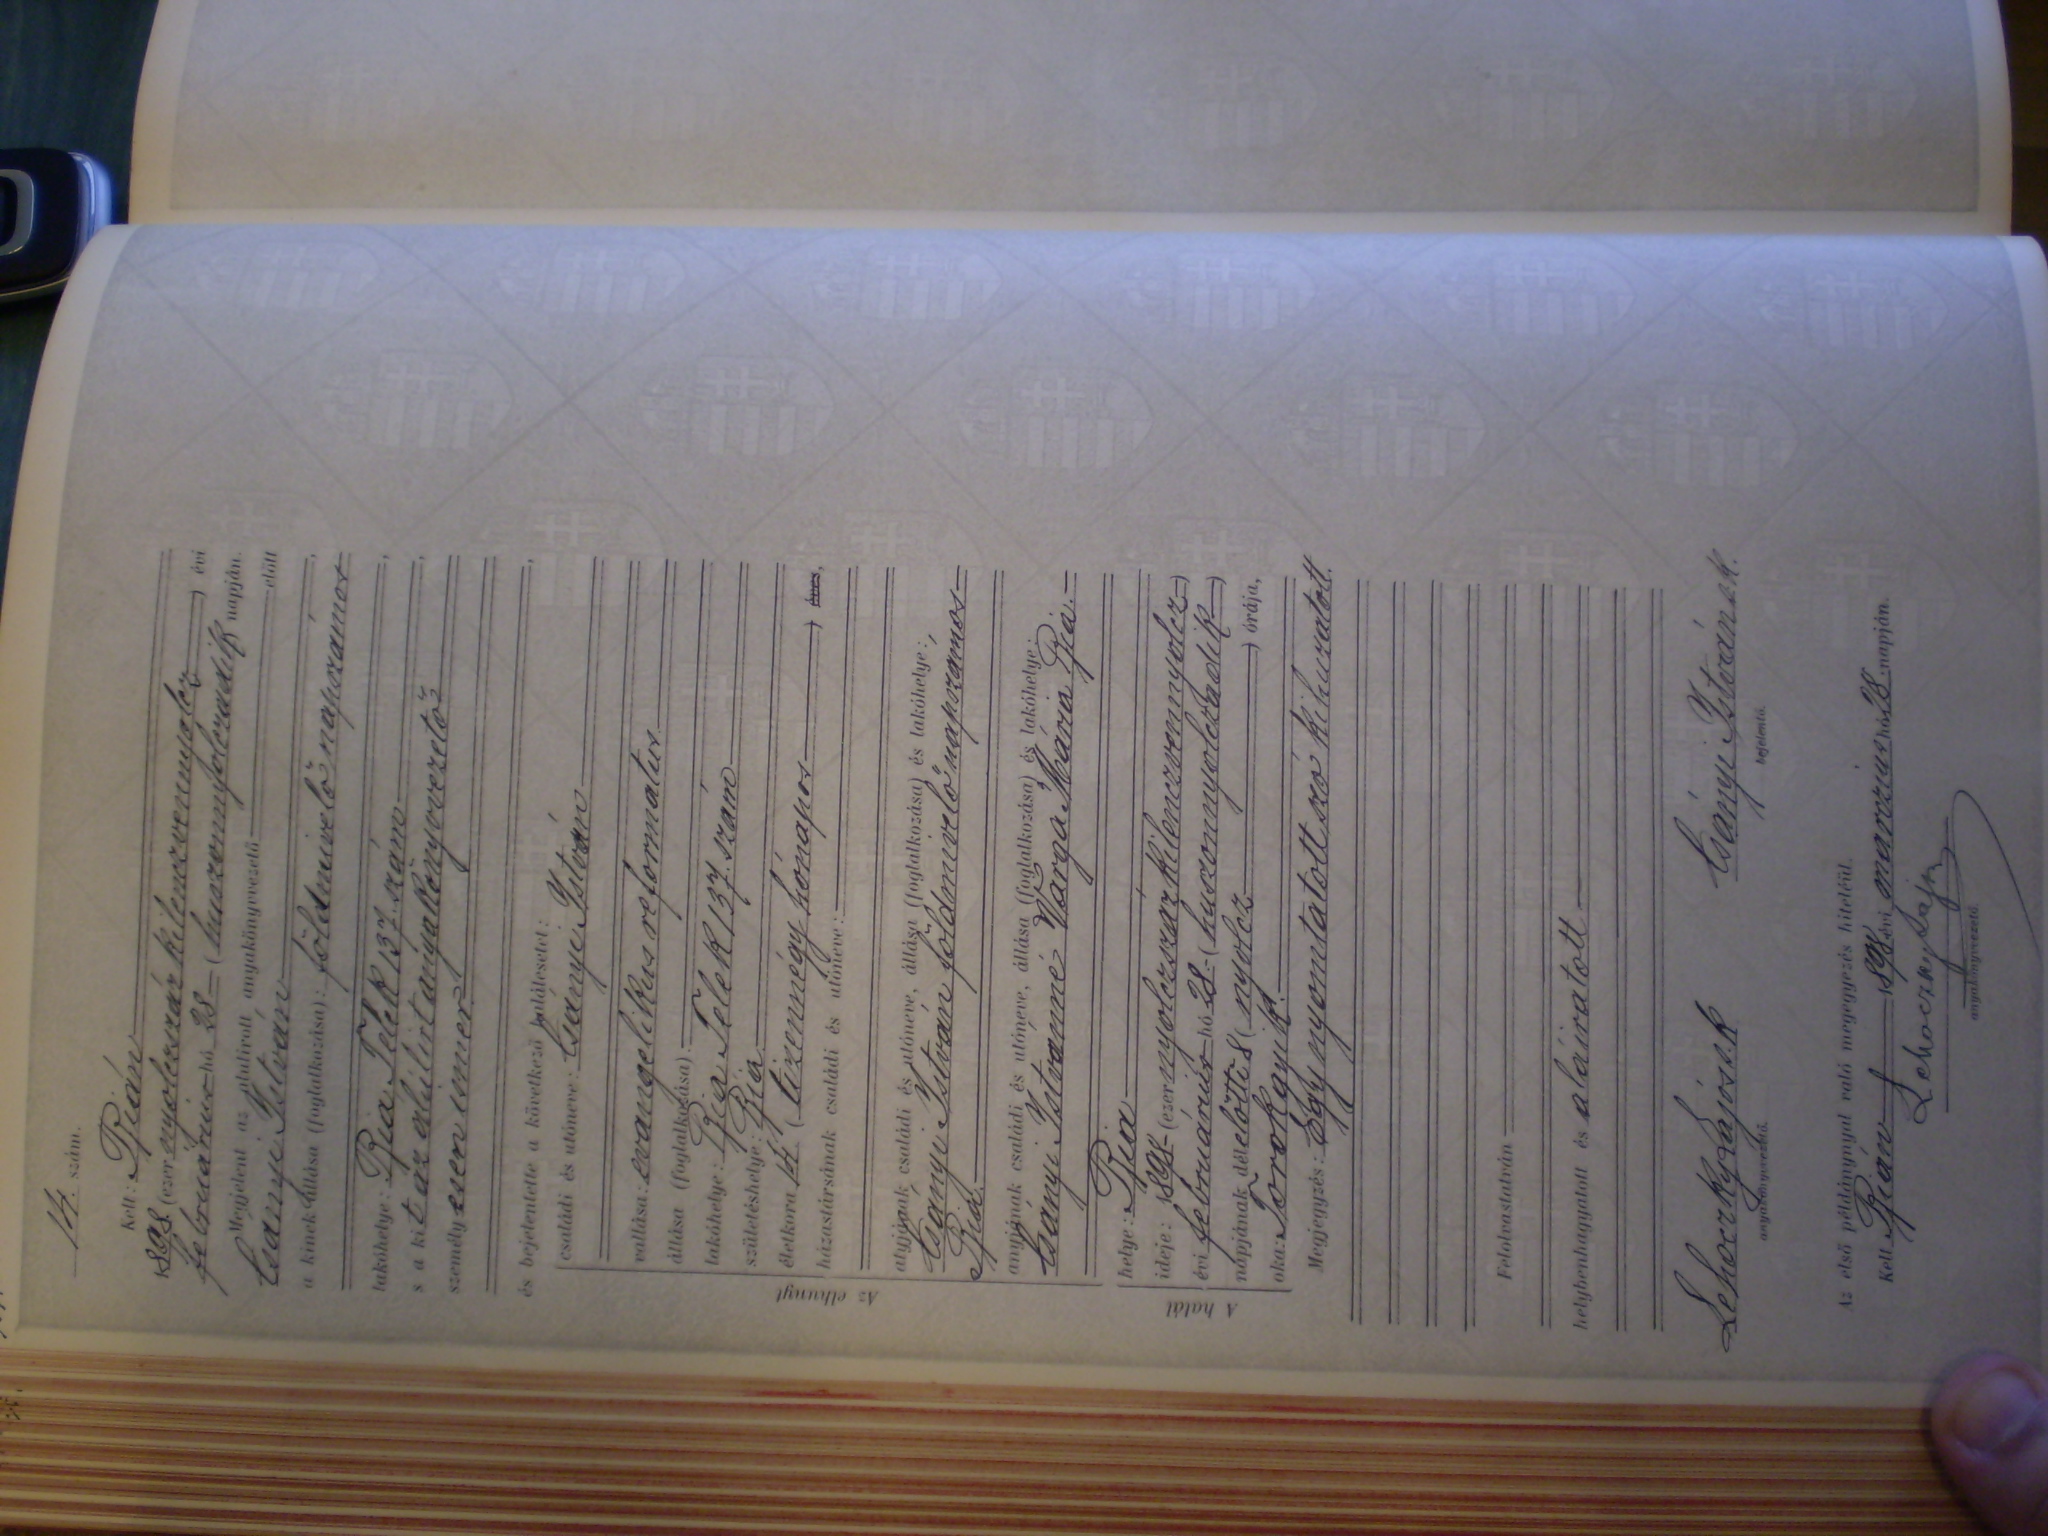 14. szám.
Kelt: Bián
1898 (ezer nyolczszáz kilenczvennyolcz) évi
február hó 28 (huszonnyolczadik) napján.
Megjelent az alulirott anyakönyvezető előtt
Csányi István
a kinek állása (foglalkozása): földmivelő napszámos,
lakóhelye: Bia Telek 137. szám,
s a kit az alulirt anyakönyvvezető,
személyesen ismer
és bejelentette a következő halálesetet:
családi és utóneve: Csányi István
Az elhunyt
vallása: evangelikus reformatus
állása (foglalkozása):
lakóhelye: Bia Telek 137. szám
születéshelye: Bia
életkora 14 (tizennégy hónapos) éves,
házastársának családi és utóneve:
atyjának családi és utóneve, állása (foglalkozása) és lakóhelye:
Csányi István földmivelő napszamos
Bia.
anyjának családi és utóneve, állása (foglalkozása) és lakóhelye:
Csányi Istvánné Varga Mária Bia.
A halál
helye: Bia
ideje: 1898 (ezer nyolczszáz kilenczvennyolcz)
évi február hó 28 (huszonnyolczadik)
napjának délelőtti 8 (nyolcz) órája,
oka: Torokgyik.
Megjegyzés: Egy nyomtatott szó kihuzatott.
Felolvastatván
helybenhagyatott és aláiratott
Lehoczky Lajos s.k Csányi István s.k.
anyakönyvvezető. bejelentő.
Az első példánynyal való megegyezés hiteléül.
Kelt Bián 1898 évi marczius hó 28. napján.
Lehoczky Lajos
anyakönyvvezető.